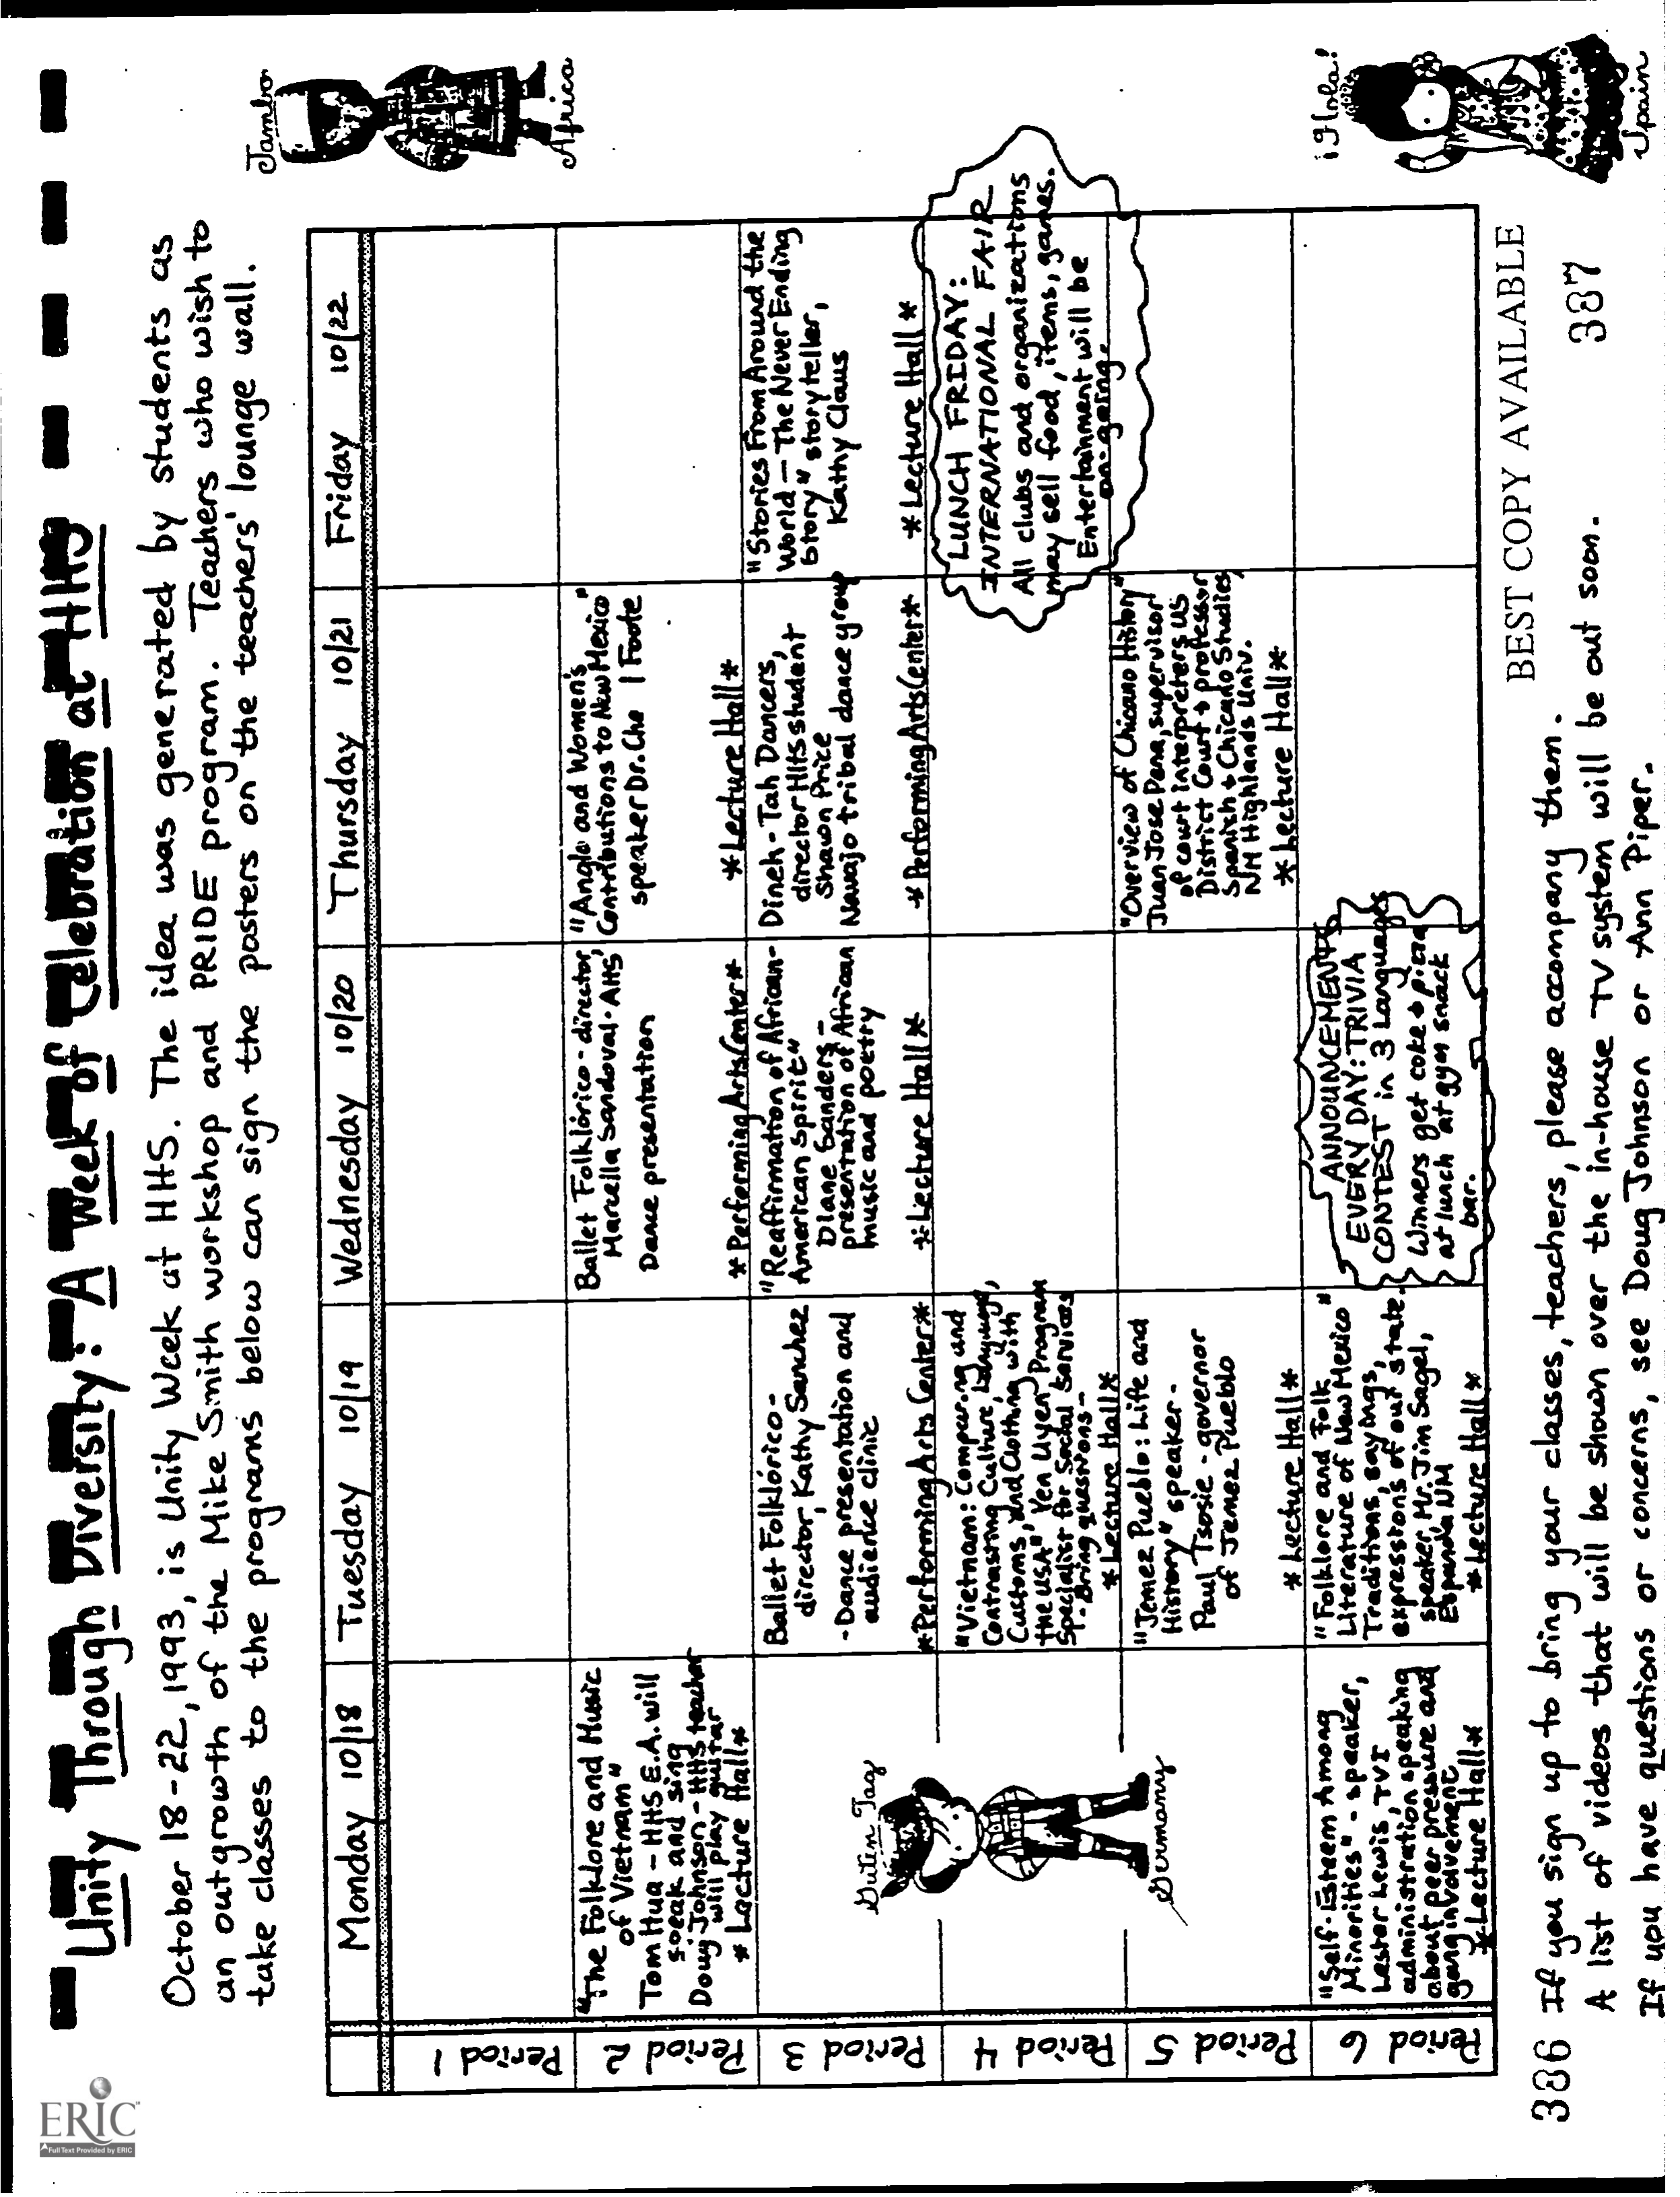 Unity Through Diversity: A Week of Celebration at HHS
October 18-22, 1993, is Unity Week at HHS. The idea was generated by students as
an outgrowth of the Mike Smith workshop and PRIDE program. Teachers who wish to
take classes to the programs below can sign the posters on the teachers' lounge wall.
Jambo
Africa
Monday 10/18
Tuesday 10/19
Wednesday 10/20
Thursday 10/21
Friday 10/22
Period 1
Period 2
"The Folklore and Music
of Vietnam"
Tom Hua - HHS E.A. will
speak and sing
Doug Johnson - HHS teacher
will play guitar
* Lecture Hall *
Ballet Folklórico - director,
Marcella Sandoval - AHS
Dance presentation
* Performing Arts Center *
"Anglo and Women's
Contributions to New Mexico"
speaker Dr. Che | Foote
* Lecture Hall *
Period 3
Ballet Folklórico -
director, Kathy Sanchez
- Dance presentation and
audience clinic
* Performing Arts Center *
"Reaffirmation of African-
American Spirit"
Diane Sanders -
presentation of African
music and poetry
* Lecture Hall *
Dineh-Tah Dancers,
director HHS student
Shawn Price
Navajo tribal dance group
* Performing Arts Center *
"Stories From Around the
World - The Never Ending
Story" storyteller,
Kathy Claus
* Lecture Hall *
Guten Tag
Germany
Period 4
"Vietnam: Comparing and
Contrasting Culture, Language,
Customs and Clothing with
the USA", Yen Uyen Program
Specialist for Social Services
- Bring questions -
* Lecture Hall *
LUNCH FRIDAY:
INTERNATIONAL FAIR
All clubs and organizations
may sell food, items, games.
Entertainment will be
on-going.
Period 5
"Jemez Pueblo: Life and
History" speaker -
Paul Tsosie - governor
of Jemez Pueblo
* Lecture Hall *
"Overview of Chicano History"
Juan Jose Pena, supervisor
of court interpreters US
District Court & professor
Spanish & Chicano Studies,
NM Highlands Univ.
* Lecture Hall *
Period 6
"Self-Esteem Among
Minorities" - speaker,
Lester Lewis, TVI
administration, speaking
about peer pressure and
gang involvement
* Lecture Hall *
"Folklore and Folk
Literature of New Mexico"
Traditions, sayings,
expressions of our state.
speaker Mr. Jim Sagel,
Espanda NM
* Lecture Hall *
ANNOUNCEMENTS
EVERY DAY: TRIVIA
CONTEST in 3 Languages
Winners get coke & pizza
at lunch at gym snack
bar.
¡Hola!
Spain
BEST COPY AVAILABLE
If you sign up to bring your classes, teachers, please accompany them.
A list of videos that will be shown over the in-house TV system will be out soon.
If you have questions or concerns, see Doug Johnson or Ann Piper.
386
387
ERIC
Full Text Provided by ERIC